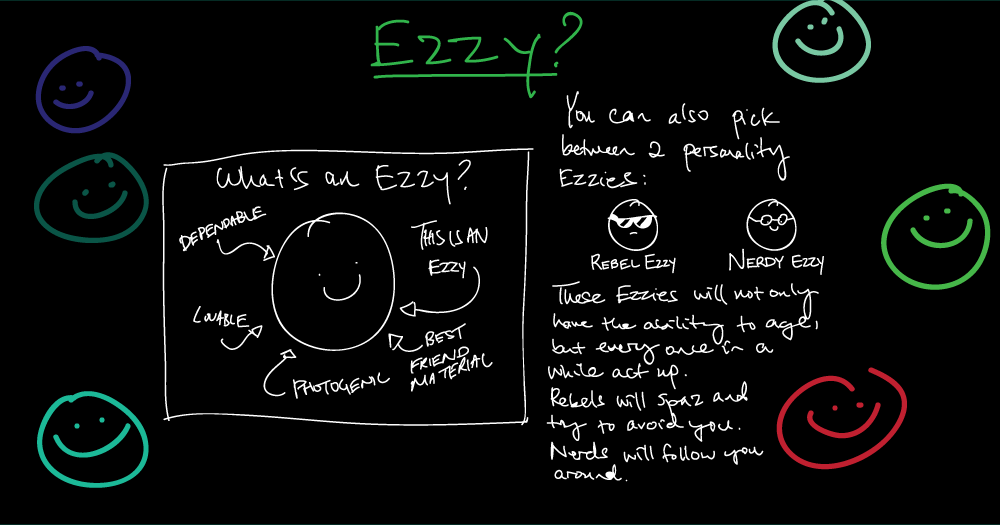 Ezzy?
What's an Ezzy?
DEPENDABLE
THIS IS AN
EZZY
LOVABLE
BEST
FRIEND
MATERIAL
PHOTOGENIC
You can also pick
between 2 personality
Ezzies:
REBEL EZZY
NERDY EZZY
These Ezzies will not only
have the ability to age,
but every once in a
while act up.
Rebels will spaz and
try to avoid you.
Nerds will follow you
around.